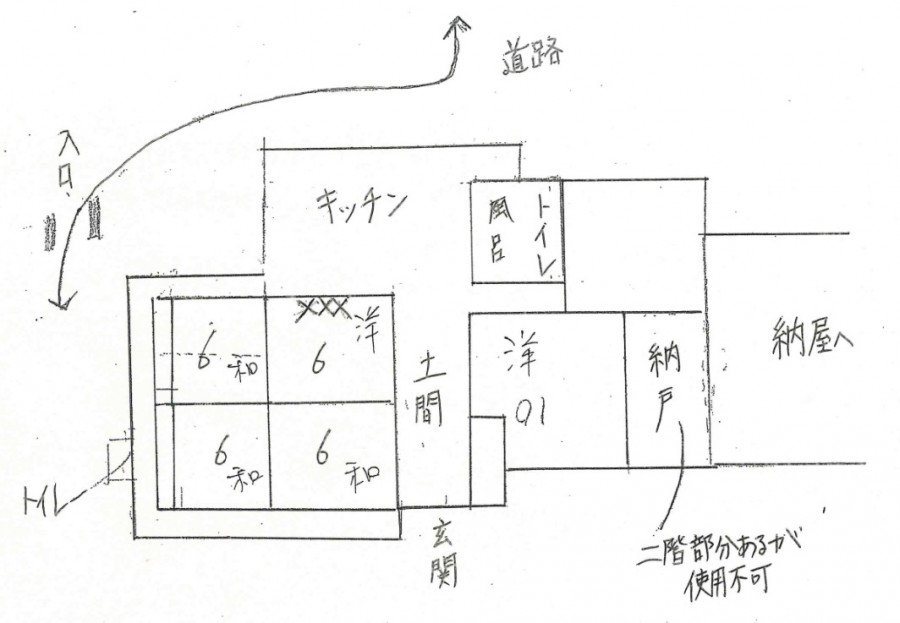 道路
入口
キッチン
風呂
トイレ
納屋へ
洋
6
和
6
土間
洋
納戸
6
和
6
和
トイレ
玄関
二階部分あるが
使用不可